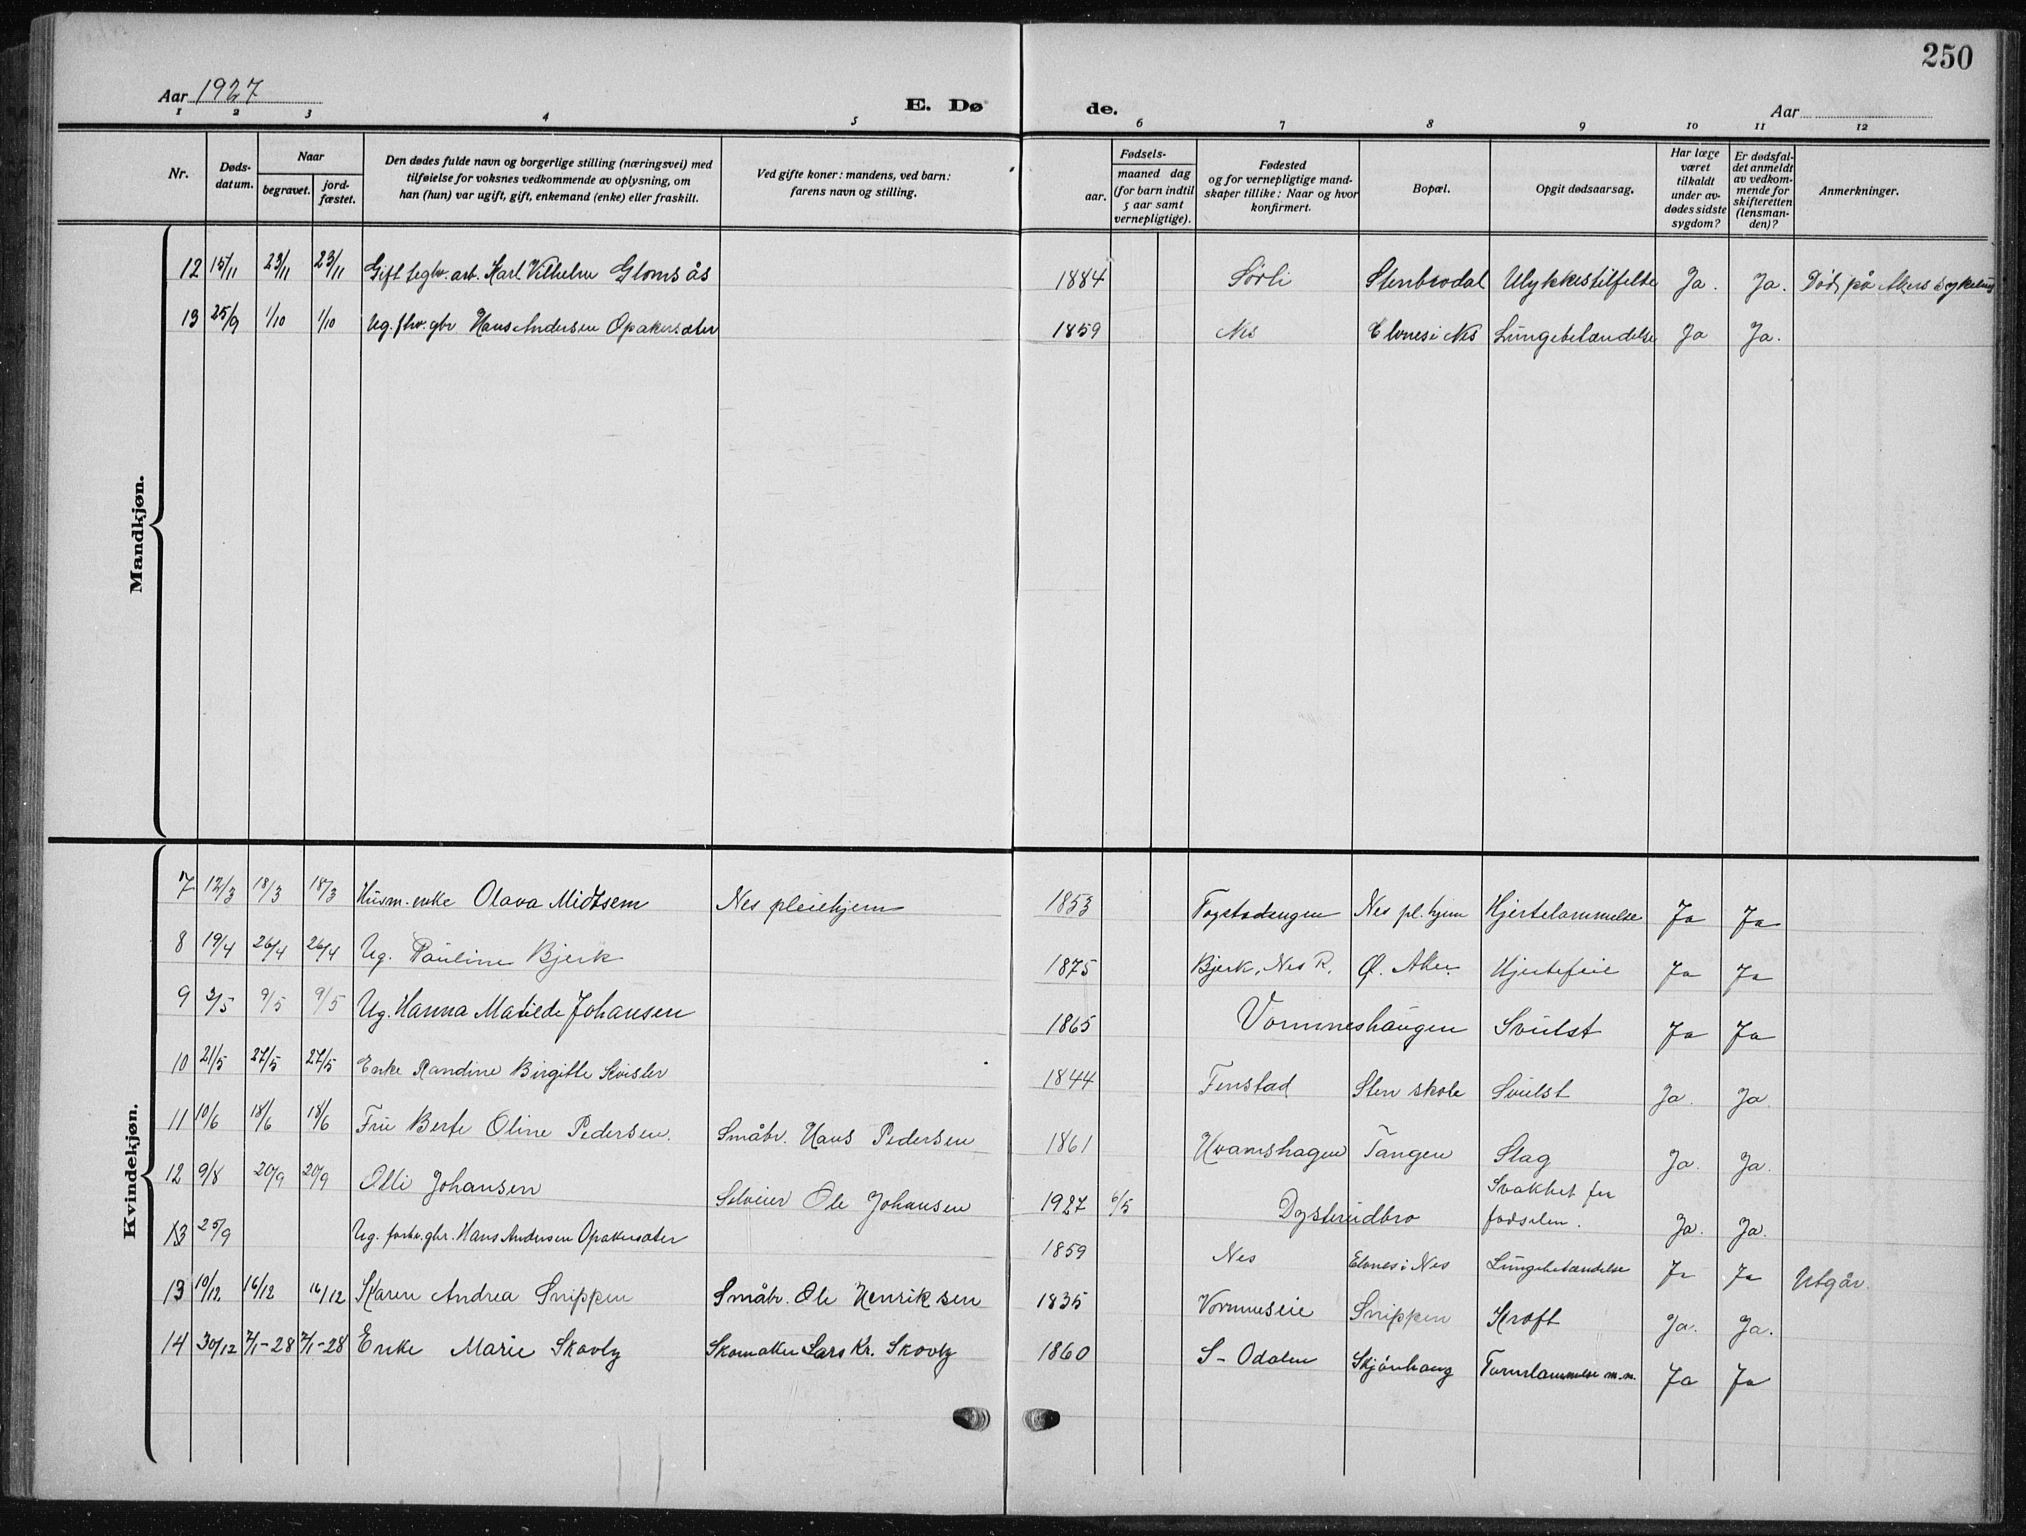 250
Aar 1927
E. Dø de.
Aar
1 2 3 4 5 6 7 8 9 10 11 12
Nr.
Døds-
datum.
Naar
begravet.
jord-
fæstet.
Den dødes fulde navn og borgerlige stilling (næringsvei) med
tilføielse for voksnes vedkommende av oplysning, om
han (hun) var ugift, gift, enkemand (enke) eller fraskilt.
Ved gifte koner: mandens, ved barn:
farens navn og stilling.
Fødsels-
aar.
maaned dag
(for barn indtil
5 aar samt
vernepligtige).
Fødested
og for vernepligtige mand-
skaper tillike: Naar og hvor
konfirmert.
Bopæl.
Opgit dødsaarsag.
Har læge
været
tilkaldt
under av-
dødes sidste
sygdom?
Er dødsfal-
det anmeldt
av vedkom-
mende for
skifteretten
(lensman-
den)?
Anmerkninger.
Mandkjøn.
12 15/11 23/11 23/11 Gift arb. Karl Vilhelm Glomsås 1884 Sørli Stenbrodal Ulykkestilfelde Ja. Ja. Død på Akers sykehus
13 25/9 1/10 1/10 Ug. fhv. gbr Hans Andersen Opakersæter 1859 Nes Elvnes i Nes Lungebetændelse Ja Ja.
Kvindekjøn.
7 12/3 18/3 18/3 Husm. enke Olava Midtsem Nes pleiehjem 1853 Fogstadengen Nes pl. hjem Hjertelammelse Ja Ja
8 19/4 26/4 26/4 Ug. Pauline Bjerk 1875 Bjerk, Nes R. Ø. Aker. Hjertefeil Ja Ja
9 2/5 9/5 9/5 Ug. Hanna Matilde Johansen 1865 Vormneshaugen Svulst Ja Ja
10 21/5 27/5 27/5 Enke Randine Birgitte Kvisler 1844 Fenstad Sten skole Svulst Ja. Ja.
11 10/6 18/6 18/6 Fru Berte Oline Pedersen. Småbr. Hans Pedersen 1861 Hvamshagen Tangen Slag Ja. Ja.
12 9/8 20/9 20/9 Olli Johansen Selveier Ole Johansen 1927 6/5 Dysterudbro Svakhet fra fødselen. Ja. Ja.
13 25/9 Ug. forhv. gbr. Hans Andersen Opakersæter 1859 Nes Elvnes i Nes Lungebetændelse Ja Ja Utgår.
13 10/12 16/12 16/12 Karen Andrea Snippen Småbr. Ole Henriksen 1835 Vormneseie Snippen Kræft Ja. Ja.
14 30/12 7/1-28 7/1-28 Enke Marie Skovly Skomaker Lars Kr. Skovly 1860 S-Odalen Skjønhaug Tarmlammelse m.m. Ja Ja